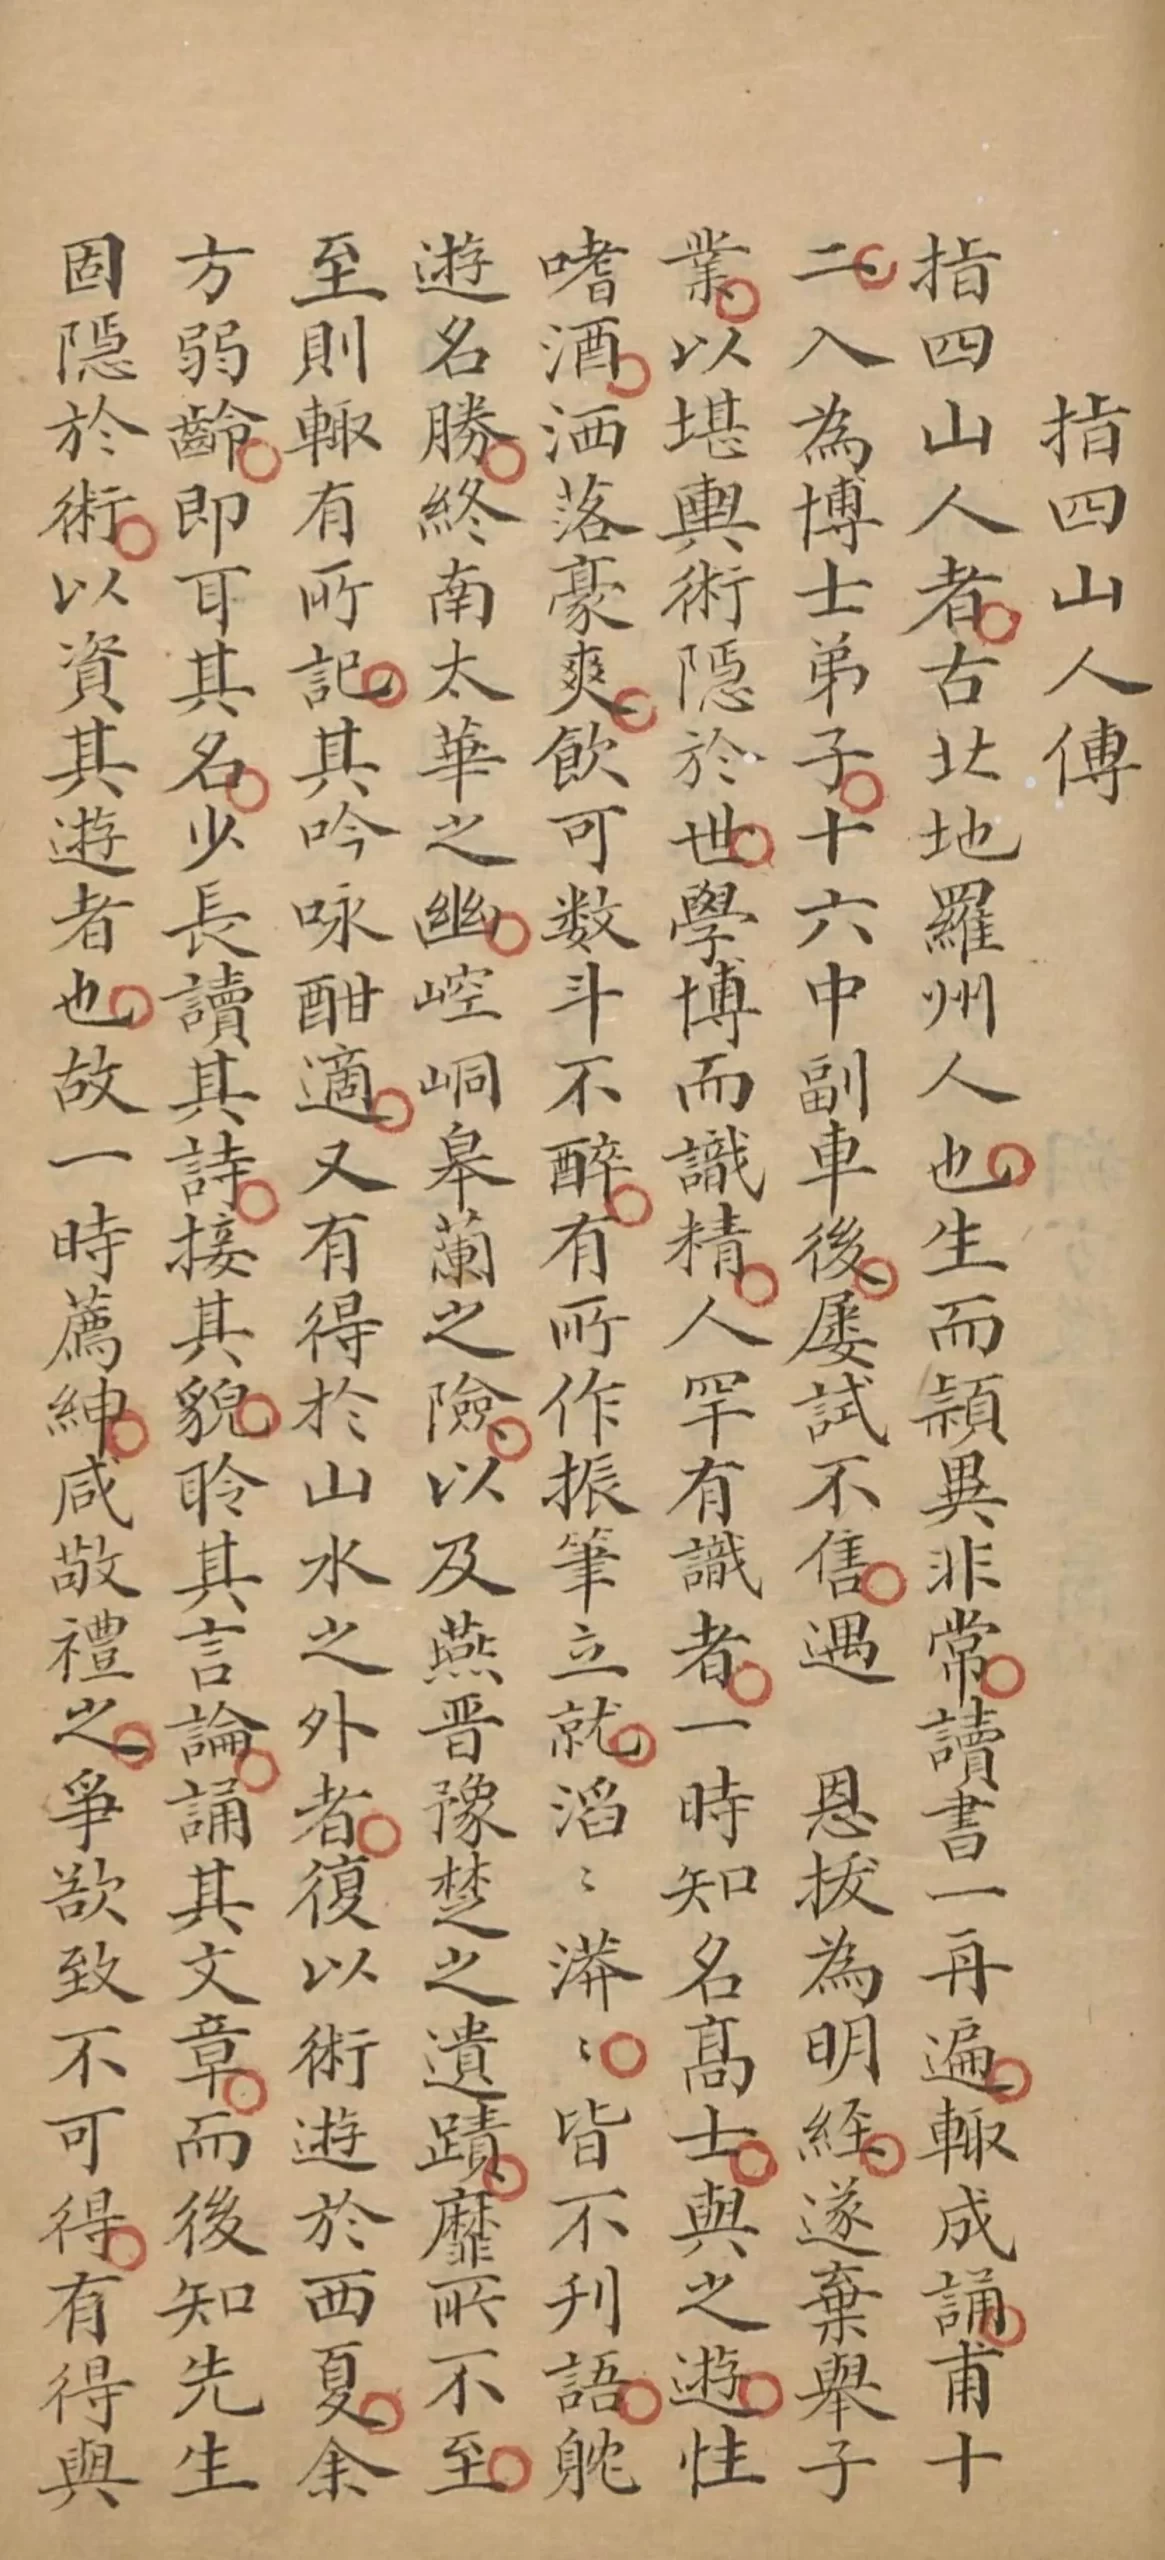 指四山人傳
指四山人者古北地羅州人也生而穎異非常讀書一再遍輙成誦甫十
二入為博士弟子十六中副車後屡試不售遇 恩拔為明經遂棄舉子
業以堪輿術隠於世學博而識精人罕有識者一時知名髙士與之遊性
嗜酒洒落豪爽飲可数斗不醉有所作振筆立就滔〻漭〻皆不刋語躭
遊名勝終南太華之幽崆峒皋蘭之險以及燕晋豫楚之遺蹟靡所不至
至則輙有所記其吟咏酣適又有得於山水之外者復以術遊於西夏余
方弱齡即耳其名少長讀其詩接其貌聆其言論誦其文章而後知先生
固隠於術以資其遊者也故一時薦紳咸敬禮之爭欲致不可得有得與